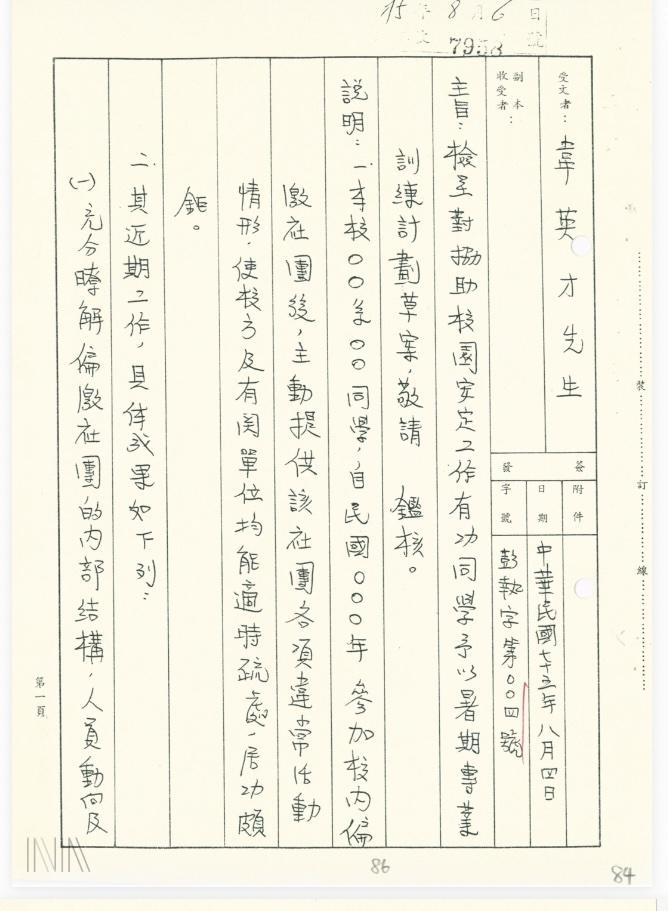 75年8月6日
文 7958 號
受文者：韋英才先生
副本
收受者：
簽
發
附件
日期
中華民國七十五年八月四日
字號
彭執字第00四號
主旨：檢呈對協助校園安定工作有功同學予以暑期專業
訓練計劃草案，敬請 鑑核。
說明：一、本校○○系○○同學，自民國○○○年參加校內偏
激社團後，主動提供該社團各項違常活動
情形，使校方及有関單位均能適時疏處，居功頗
鉅。
二、其近期工作，具体成果如下列：
(一)充分瞭解偏激社團的內部結構，人員動向及
第一頁
裝
訂
線
86
84